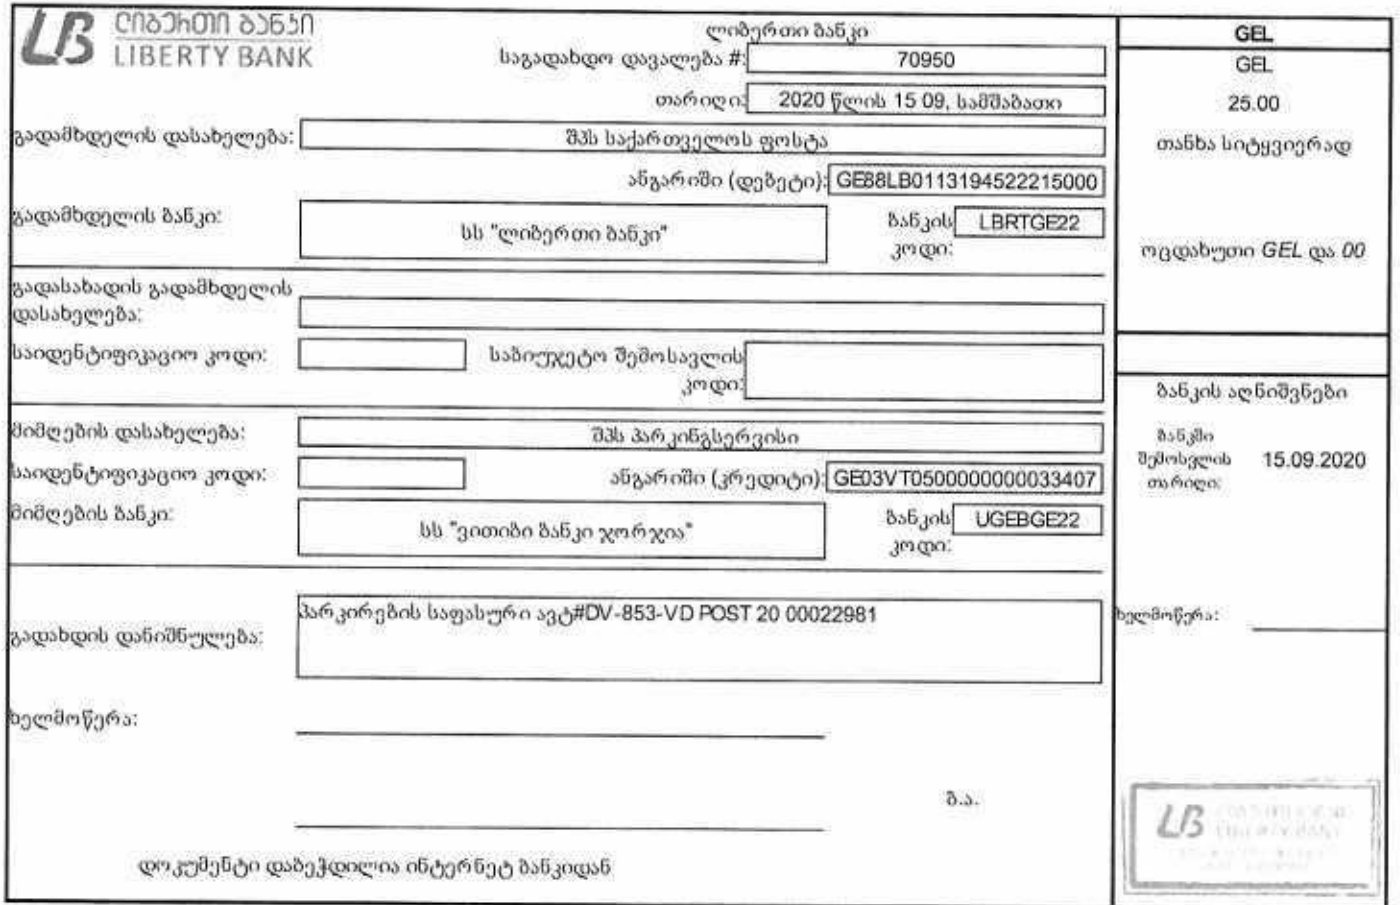 ლიბერთი ბანკი
LIBERTY BANK
ლიბერთი ბანკი
საგადახდო დავალება #: 70950
თარიღი: 2020 წლის 15 09, სამშაბათი
გადამხდელის დასახელება: შპს საქართველოს ფოსტა
ანგარიში (დებეტი): GE88LB0113194522215000
გადამხდელის ბანკი: სს "ლიბერთი ბანკი" ბანკის კოდი: LBRTGE22
გადასახადის გადამხდელის
დასახელება:
საიდენტიფიკაციო კოდი: საბიუჯეტო შემოსავლის
კოდი:
მიმღების დასახელება: შპს პარკინგსერვისი
საიდენტიფიკაციო კოდი: ანგარიში (კრედიტი): GE03VT0500000000033407
მიმღების ბანკი: სს "ვითიბი ბანკი ჯორჯია" ბანკის კოდი: UGEBGE22
გადახდის დანიშნულება: პარკირების საფასური ავტ#DV-853-VD POST 20 00022981
ხელმოწერა:
ბ.ა.
დოკუმენტი დაბეჭდილია ინტერნეტ ბანკიდან
GEL
GEL
25.00
თანხა სიტყვიერად
ოცდახუთი GEL და 00
ბანკის აღნიშვნები
ბანკში
შემოსვლის 15.09.2020
თარიღი:
ხელმოწერა:
LB